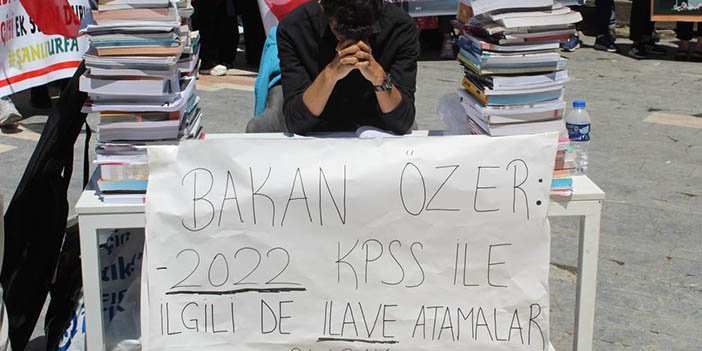 EK
#ŞANLIURFA
BAKAN ÖZER:
-2022 KPSS İLE
İLGİLİ DE İLAVE ATAMALAR